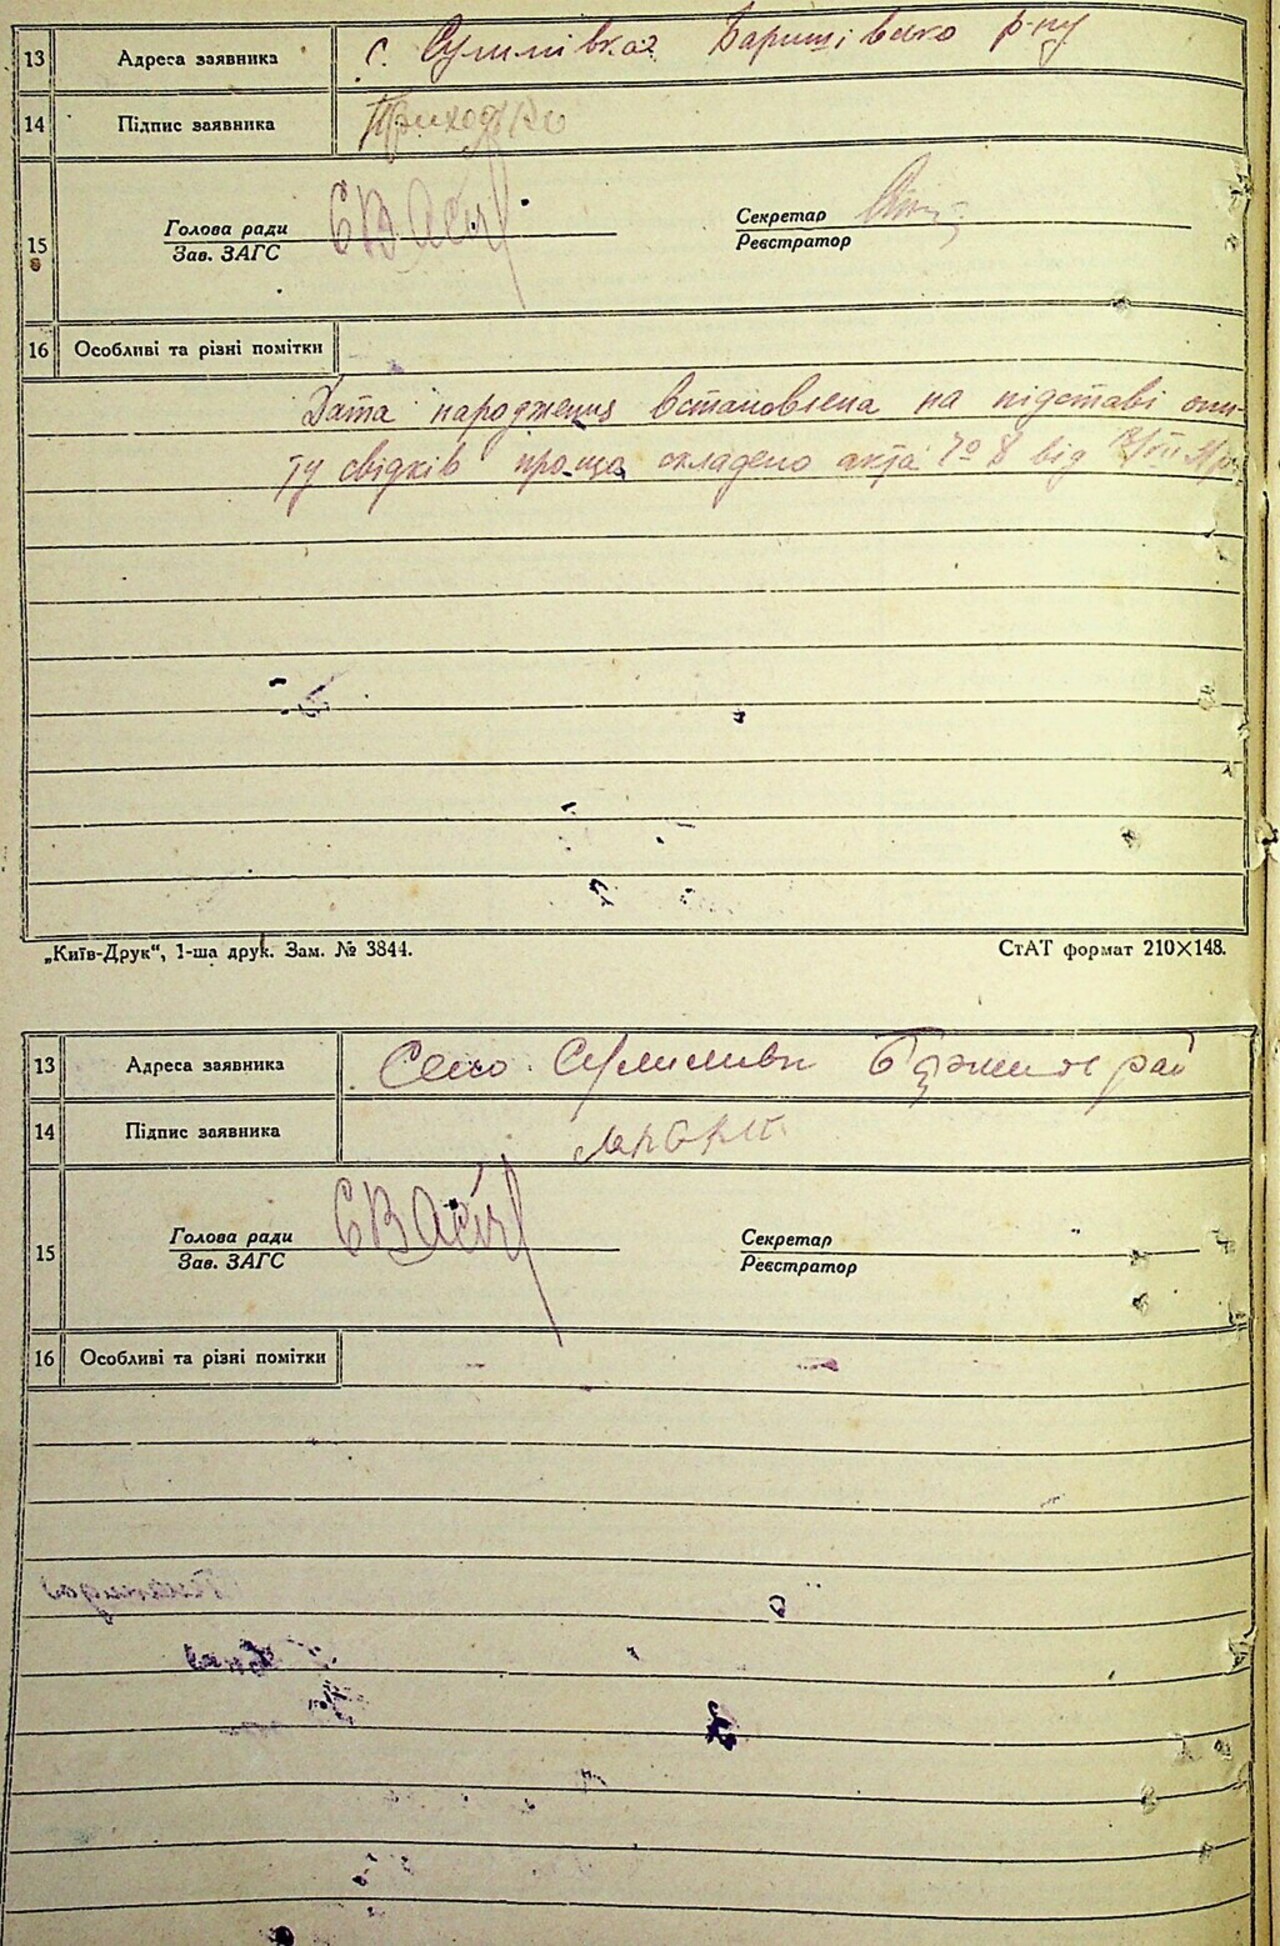 13 Адреса заявника с. Сулимівка Баришівсько р-ну
14 Підпис заявника Приходько
15 Голова ради Секретар
Зав. ЗАГС Реєстратор
16 Особливі та різні помітки
Дата народження встановлена на підставі опи-
ту свідків про що складено акта № 8 від
„Київ-Друк“, 1-ша друк. Зам. № 3844. СтАТ формат 210×148.
13 Адреса заявника Село
14 Підпис заявника
15 Голова ради Секретар
Зав. ЗАГС Реєстратор
16 Особливі та різні помітки